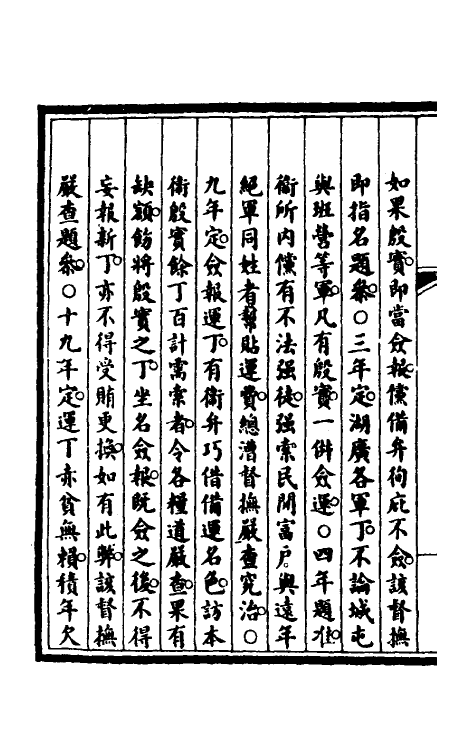 如果殷實。即當僉報。儻備弁徇庇不僉。該督撫
即指名題參。○三年定。湖廣各軍丁。不論城屯
與班營等軍。凡有殷實。一倂僉運。○四年題准。
衞所內儻有不法强徒。强索民間富戶。與遠年
絕軍同姓者幫貼運費。總漕督撫嚴查究治。○
九年定。僉報運丁。有衞弁巧借備運名色。訪本
衞殷實餘丁百計需索者。令各糧道嚴查。果有
缺額。飭將殷實之丁。坐名僉報。旣僉之後。不得
妄報新丁。亦不得受賄更換。如有此弊。該督撫
嚴查題參。○十九年定。運丁亦貧無賴。積年欠